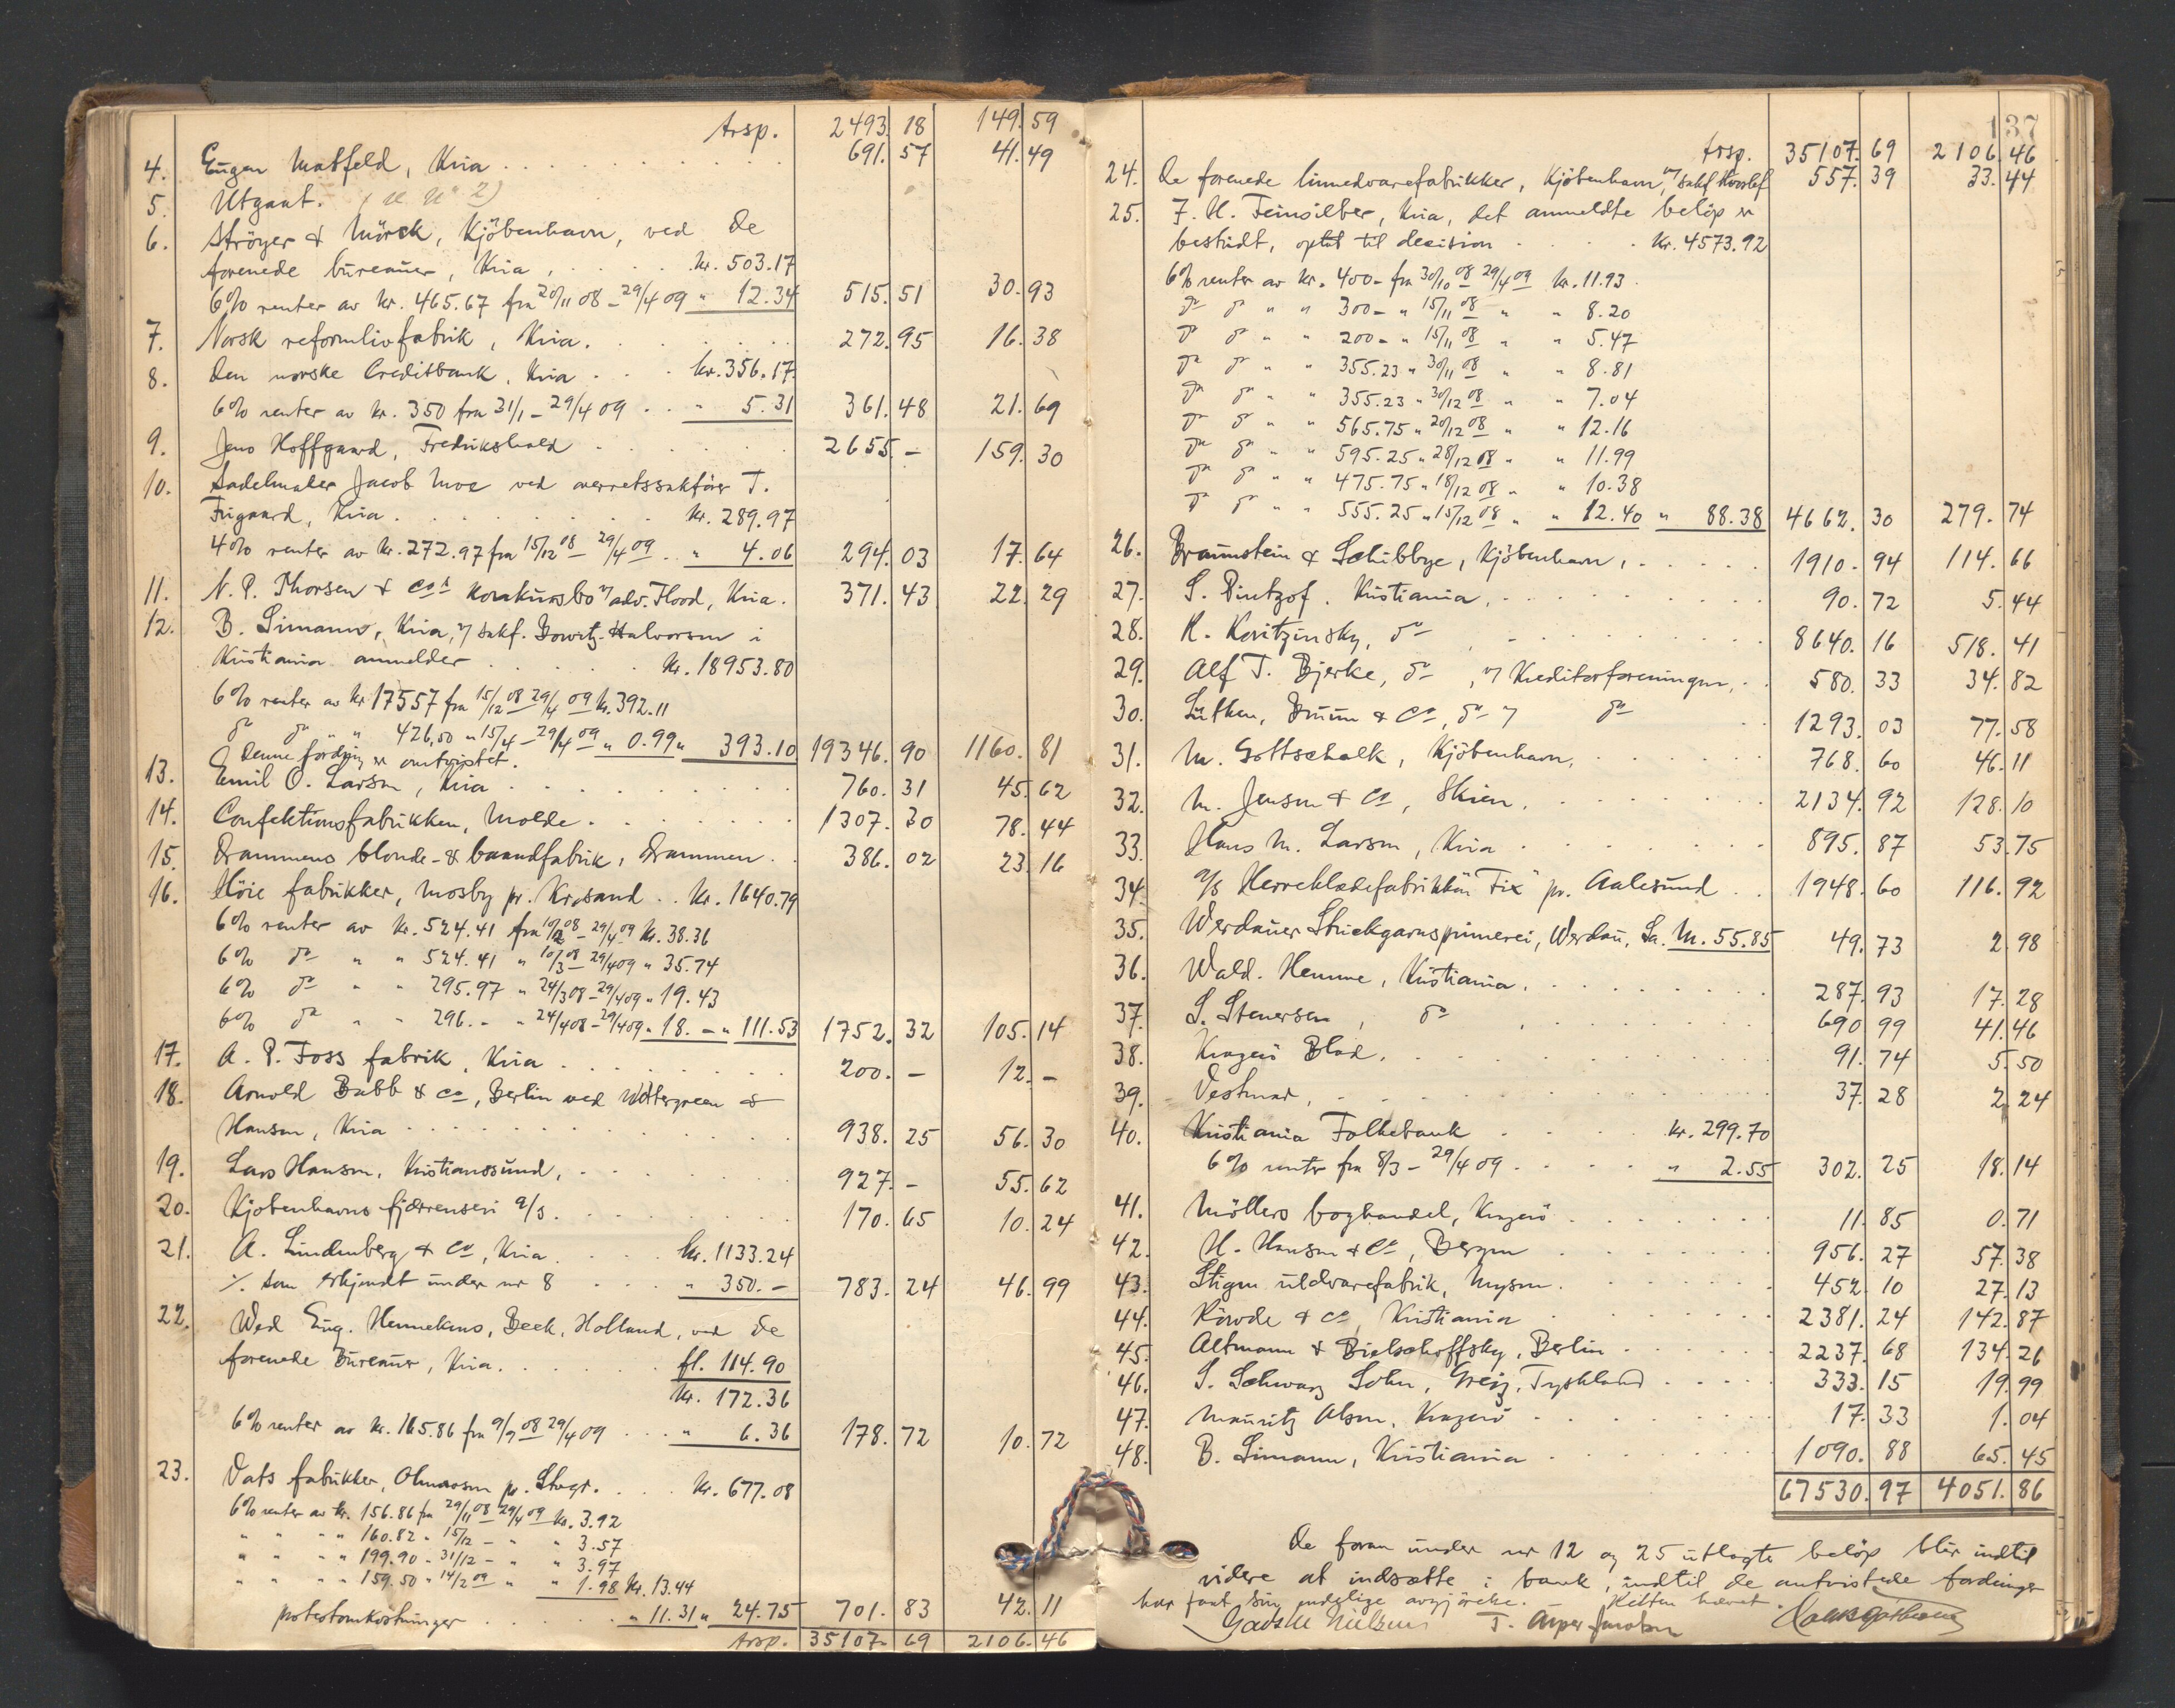 trsp. 2493. 18 149. 59
4. Eugen Matfeld, Kria . . . . 691. 57 41. 49
5. Utgaat. (se No 2)
6. Ströyer & Mörck, Kjöbenhavn, ved De
forenede bureauer, Kria, . . . . kr. 503.17
6% renter av kr. 465.67 fra 20/11 08 – 29/4 09 " 12.34 515. 51 30. 93
7. Norsk reformlivfabrik, Kria. . . . . 272. 95 16. 38
8. Den norske Creditbank, Kria . . . kr. 356.17
6% renter av kr. 350 fra 31/1 – 29/4 09 . . " 5.31 361. 48 21. 69
9. Jens Hoffgaard, Fredrikshald . . . . 2655. – 159. 30
10. Sadelmaker Jacob Moe ved overretssakförer T.
Frigaard, Kria. . . . . kr. 289.97
4% renter av kr. 272.97 fra 15/12 08 – 29/4 09 . . " 4.06 294. 03 17. 64
11. N. P. Thorsen & Cos konkursbo v/ adv. Flood, Kria. 371. 43 22. 29
12. B. Simann, Kria, v/ sakf. Dowitz-Halvorsen i
Kristiania anmelder . . . . kr. 18953.80
6% renter av kr 17557 fra 15/12 08 29/4 09 kr. 392.11
do do " " 426,50 " 15/4 – 29/4 09 " 0.99 " 393.10 19346. 90 1160. 81
Denne fordring er omtvistet.
13. Emil O. Larsen, Kria . . . . 760. 31 45. 62
14. Confektionsfabrikken, Molde. . . . . 1307. 30 78. 44
15. Drammens blonde- & baandfabrik, Drammen. . 386. 02 23. 16
16. Höie fabrikker, Mosby pr. Kr.sand . . kr. 1640.79
6% renter av kr. 524.41 fra 10/2 08 – 29/4 09 kr. 38.36
6% do " " 524.41 " 10/3 08 29/4 09 " 35.74
6% do " " 295.97 " 24/3 08 – 29/4 09 " 19.43
6% do " " 296. – " 24/4 08 – 29/4 09 " 18. – " 111.53 1752. 32 105. 14
17. A. P. Foss fabrik, Kria . . . . 200. – 12. –
18. Arnold Babb & Co, Berlin ved Wettergreen &
Hansen, Kria . . . . 938. 25 56. 30
19. Lars Hansen, Kristianssund, . . . . 927. – 55. 62
20. Kjöbenhavns fjærrenseri a/s. . . . . 170. 65 10. 24
21. A. Lindenberg & Co, Kria. . . . kr. 1133.24
% som erkjendt under nr 8 . . . " 350. – 783. 24 46. 99
22. Wed Eug. Hennekens, Beek, Holland, ved De
forenede Bureauer, Kria. . . . . fl. 114.90
kr. 172.36
6% renter av kr. 165.86 fra 9/9 08 29/4 09 . . . " 6.36 178. 72 10. 72
23. Vats fabrikker, Ølmaasen pr. Stvgr. . . . kr. 677.08
6% renter av kr. 156.86 fra 29/11 08 29/4 09 kr. 3.92
" " " " 160.82 " 15/12 – " " 3.57
" " " " 199.90 " 31/12 – " " 3.97
" " " " 159.50 " 14/2 09 " " 1.98 kr. 13.44
protestomkostninger . . . . " 11.31 " 24.75 701. 83 42. 11
trsp. 35107. 69 2106. 46
137
trsp. 35107. 69 2106. 46
24. De forenede linnedvarefabrikker, Kjöbenhavn, v/ sakf 557. 39 33. 44
25. F. H. Feinsilber, Kria, det anmeldte belöp er
bestridt, optat til decision . . . . kr. 4573.92
6% renter av kr. 400 – fra 30/10 08 29/4 09 kr. 11.93
do do " " 300 – " 15/11 08 " " 8.20
do do " " 200 – " 15/11 08 " " 5.47
do do " " 355.23 " 30/11 08 " " 8.81
do do " " 355.23 " 30/12 08 " " 7.04
do do " " 565.75 " 20/12 08 " " 12.16
do do " " 595.25 " 28/12 08 " " 11.99
do do " " 475.75 " 18/12 08 " " 10.38
do do " " 555.25 " 15/12 08 " " 12.40 " 88.38 4662. 30 279. 74
26. Braunstein & Schibbye, Kjöbenhavn, . . . . 1910. 94 114. 66
27. S. Pintzof. Kristiania, . . . . 90. 72 5. 44
28. K. Koritzinsky, do . . . . 8640. 16 518. 41
29. Alf T. Bjerke, do, v/ Kreditorforeningen, . . 580. 33 34. 82
30. Lütken, Bruun & Co, do v/ do . 1293. 03 77. 58
31. M. Gottschalk, Kjöbenhavn, . . . . 768. 60 46. 11
32. M. Jensen & Co, Skien. . . . . 2134. 92 128. 10
33. Hans M. Larsen, Kria . . . . 895. 87 53. 75
34. a/s Herreklædefabrikken "Fix" pr. Aalesund . . 1948. 60 116. 92
35. Werdauer Strickgarnspinnerei, Werdau, Sa. M. 55.85 49. 73 2. 98
36. Wald. Hemme, Kristiania, . . . . 287. 93 17. 28
37. S. Stenersen, do . . . . 690. 99 41. 46
38. Kragerö Blad. . . . . 91. 74 5. 50
39. Vestmar, . . . . 37. 28 2. 24
40. Kristiania Folkebank . . . . kr. 299.70
6% renter fra 8/3 – 29/4 09 . . . . " 2.55 302. 25 18. 14
41. Möllers boghandel, Kragerö . . . . 11. 85 0. 71
42. H. Hansen & Co, Bergen . . . . 956. 27 57. 38
43. Stigen uldvarefabrik, Mysen. . . . . 452. 10 27. 13
44. Röwde & Co, Kristiania . . . . 2381. 24 142. 87
45. Altmann & Bielschoffsky, Berlin . . . . 2237. 68 134. 26
46. S. Schwarz Sohn, Greiz, Tyskland . . . . 333. 15 19. 99
47. Mauritz Olsen, Kragerö . . . . 17. 33 1. 04
48. B. Simann, Kristiania . . . . 1090. 88 65. 45
67530. 97 4051. 86
De foran under nr 12 og 25 utlagte belöp blir indtil
videre at indsætte i bank, indtil de omtvistede fordringer
har faat sin endelige avgjörelse. – Retten hævet.
Nielsen T. Asper